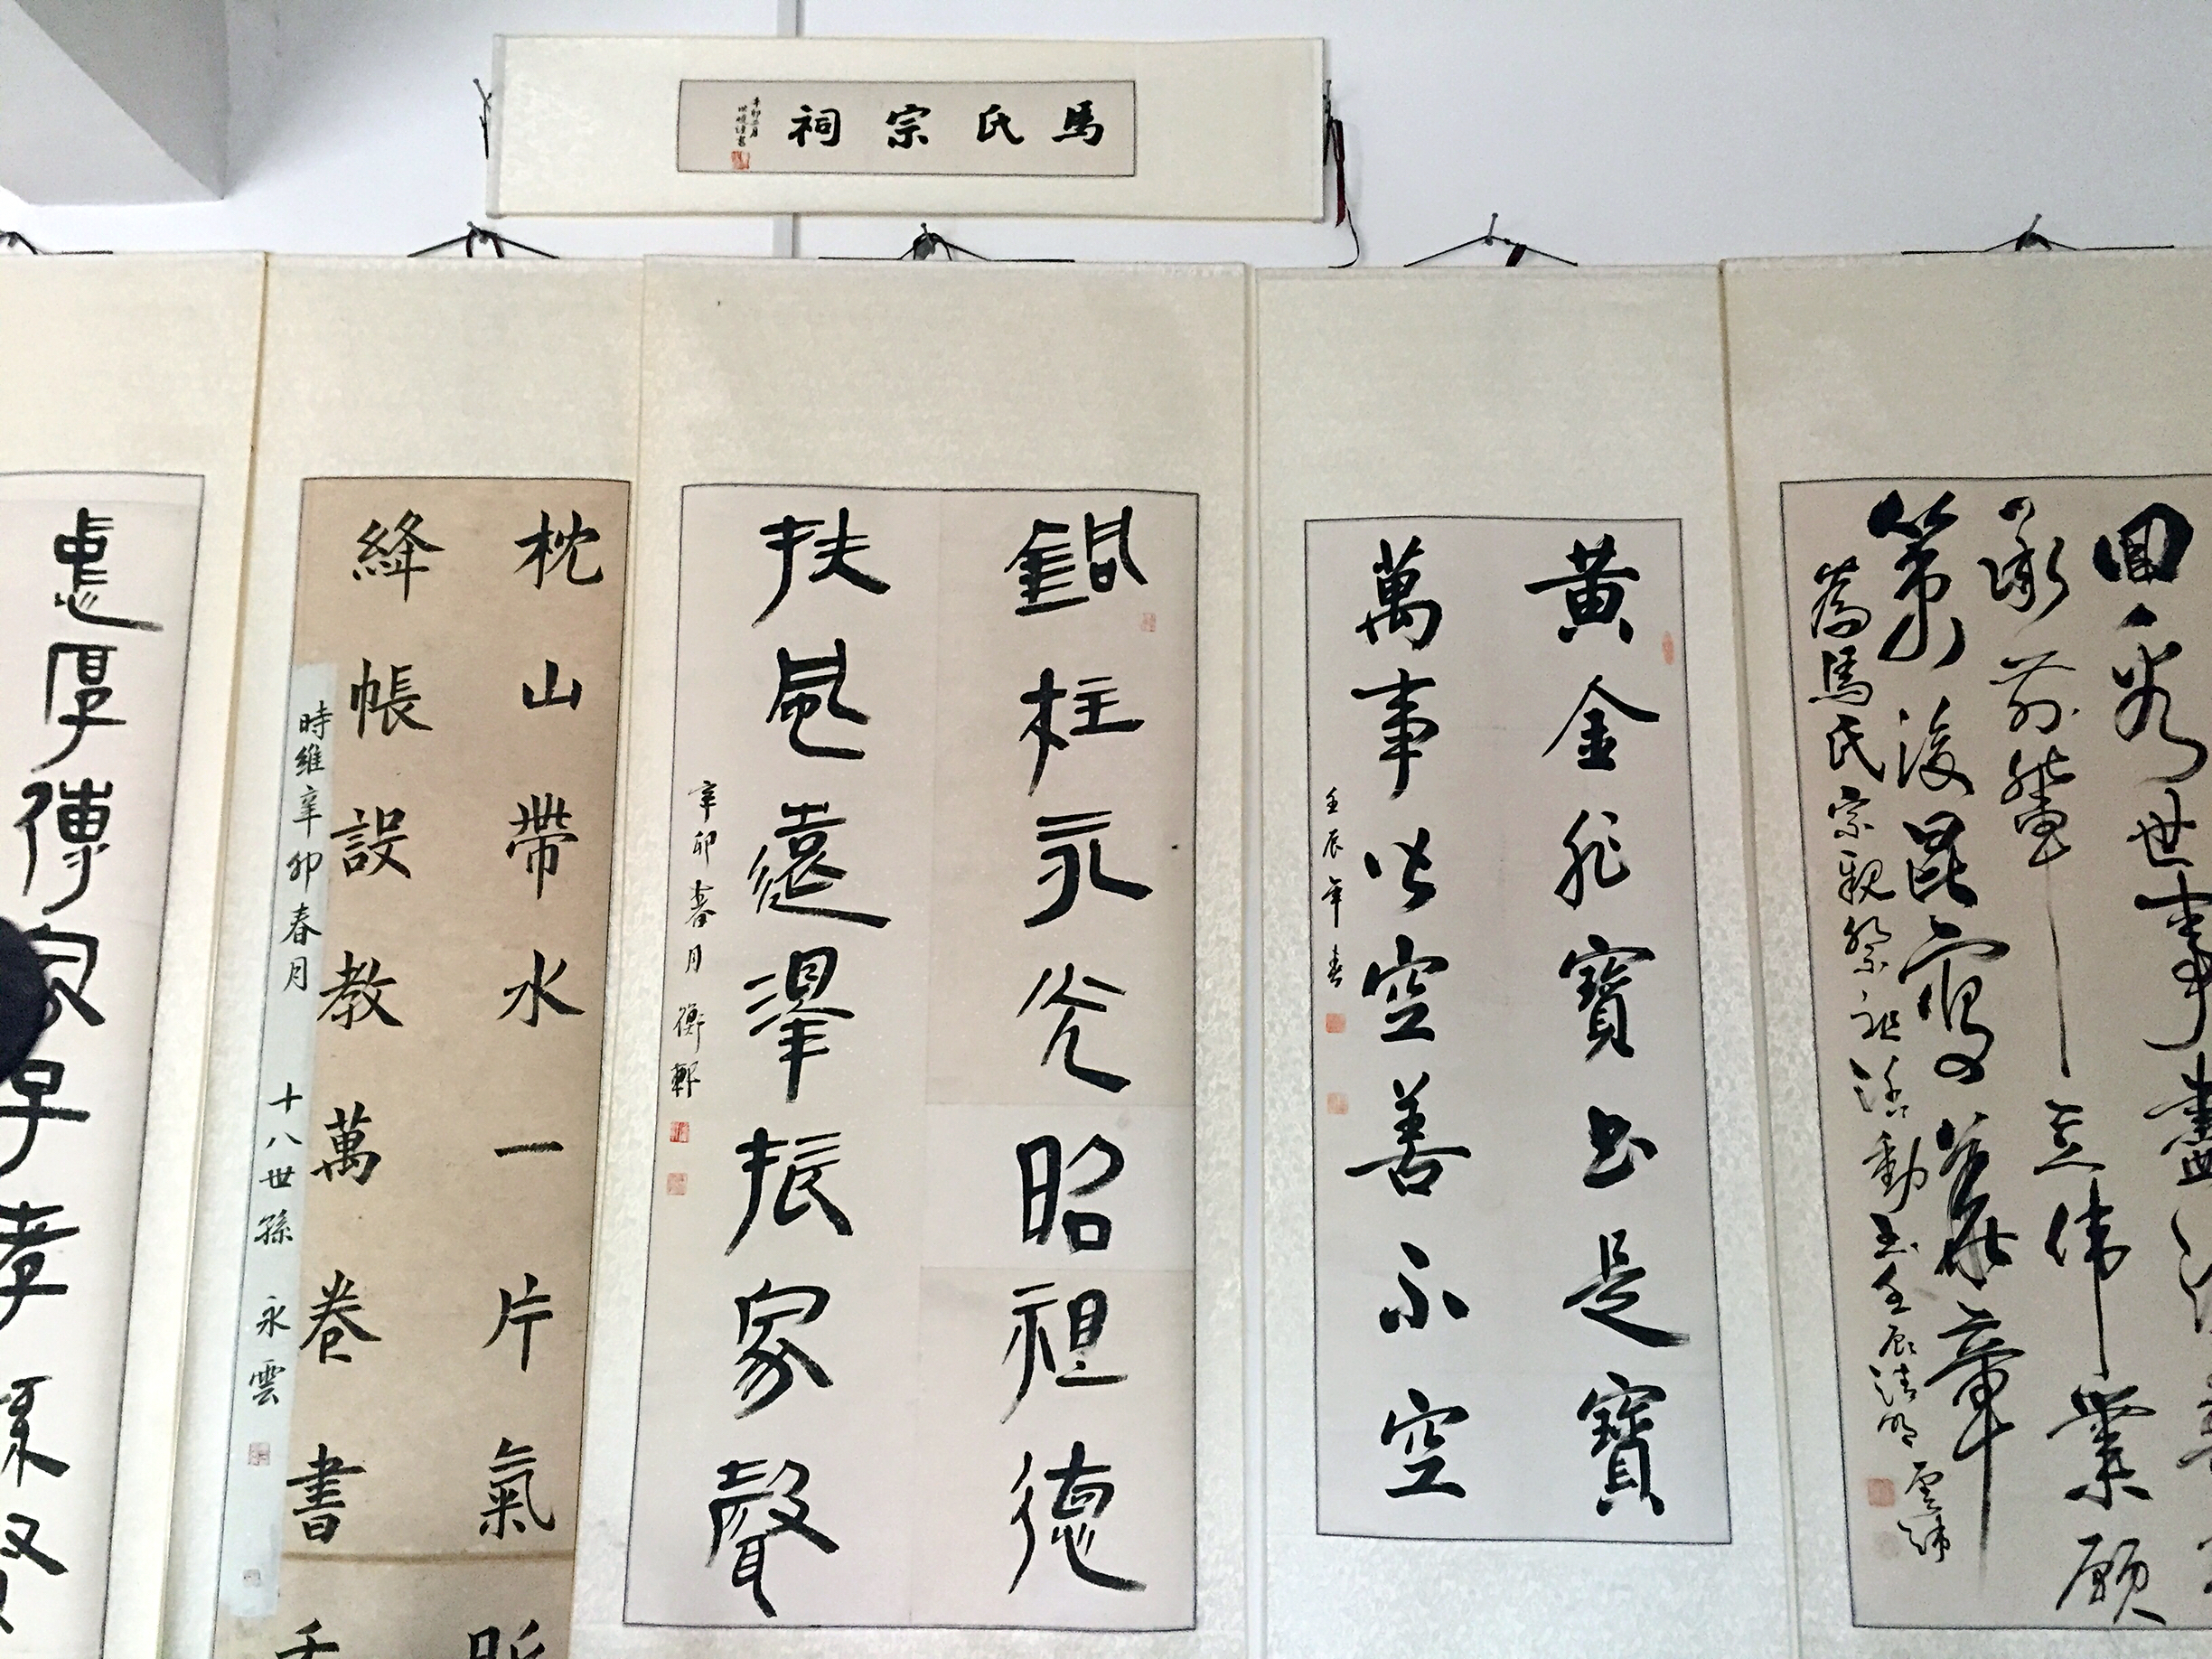 馬氏宗祠
辛卯二月
回看世事畫
承前輩立偉業願
第後昆寫華章
為馬氏宗親祭祖活動書壬辰清明
黃金非寶書是寶
萬事皆空善不空
壬辰年春
銅柱永光昭祖德
扶風遠擇振家聲
辛卯春月 衡軒
枕山帶水一片氣
絳帳設教萬卷書
時維辛卯春月 十八世孫 永雲
忠厚傳家子孝孫賢